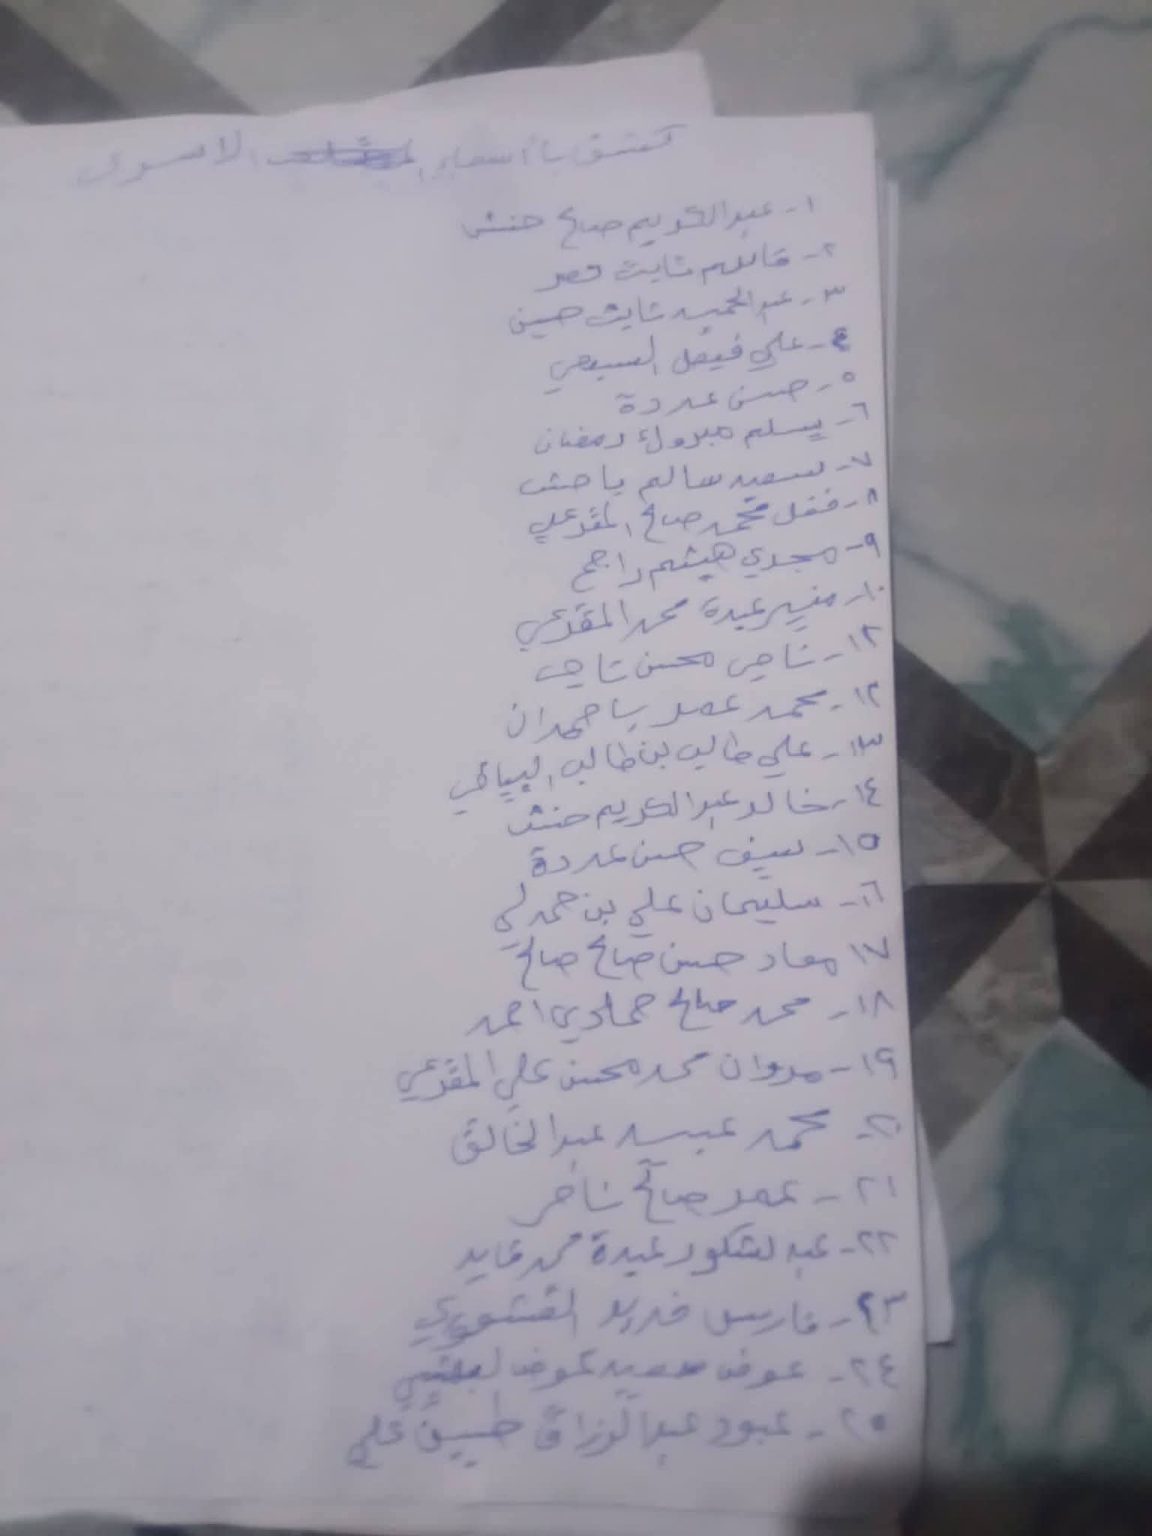 كشف بأسماء الاسرى
١- عبدالكريم صالح حنش
٢- قاسم ثابت
٣- عبدالحميد ثابت حسين
٤- علي فيصل السبعي
٥- حسن عددة
٦- يسلم مبروك رمضان
٧- سعيد سالم باحش
٨- فضل محمد صالح المقدعي
٩- مجدي هيثم راجح
١٠- منير عبدة محمد المقدعي
١٢- ناجي محسن ناجي
١٢- محمد عمر باحمدان
١٣- علي طالب بن طالب
١٤- خالد عبدالكريم حنش
١٥- سيف حسن عددة
١٦- سليمان علي بن حمد
١٧ معاد حسن صالح صالح
١٨- محمد صالح حمادي احمد
١٩- مروان محمد محسن علي المقدعي
٢٠- محمد عبدالخالق
٢١- عمر صالح ناصر
٢٢- عبدلشكور عبدة محمد قايد
٢٣- فارس فريد
٢٤- عوض سعيد عوض
٢٥- عبود عبدالرزاق علي